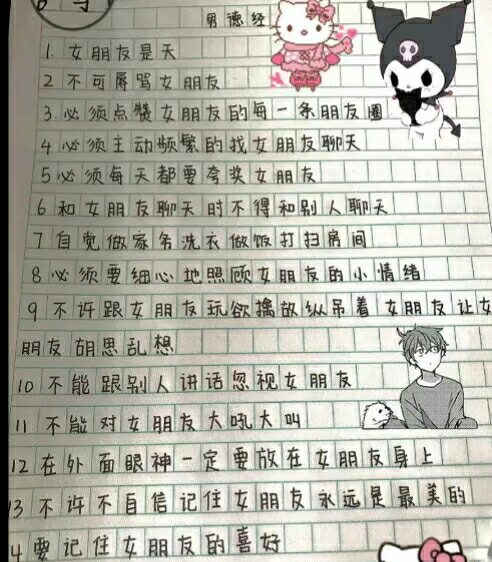 男德经
1. 女朋友是天
2 不可辱骂女朋友
3.必须点赞女朋友的每一条朋友圈
4 必须主动频繁的找女朋友聊天
5 必须每天都要夸奖女朋友
6 和女朋友聊天时不得和别人聊天
7 自觉做家务洗衣做饭打扫房间
8 必须要细心地照顾女朋友的小情绪
9 不许跟女朋友玩欲擒故纵吊着女朋友让女
朋友胡思乱想
10 不能跟别人讲话忽视女朋友
11 不能对女朋友大吼大叫
12 在外面眼神一定要放在女朋友身上
13 不许不自信记住女朋友永远是最美的
4 要记住女朋友的喜好